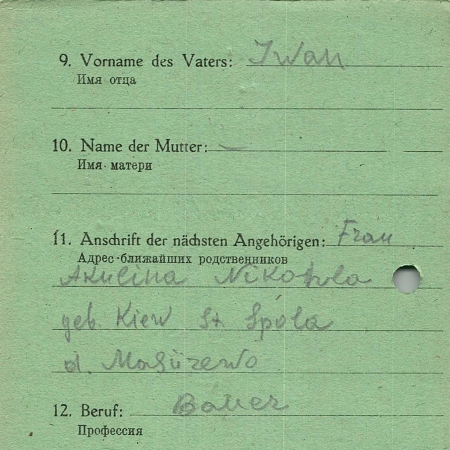 9. Vorname des Vaters: Iwan
Имя отца
10. Name der Mutter: —
Имя матери
11. Anschrift der nächsten Angehörigen: Frau
Адрес ближайших родственников
Akulina
geb. Kiew St. Spola
d.
12. Beruf: Bauer
Профессия